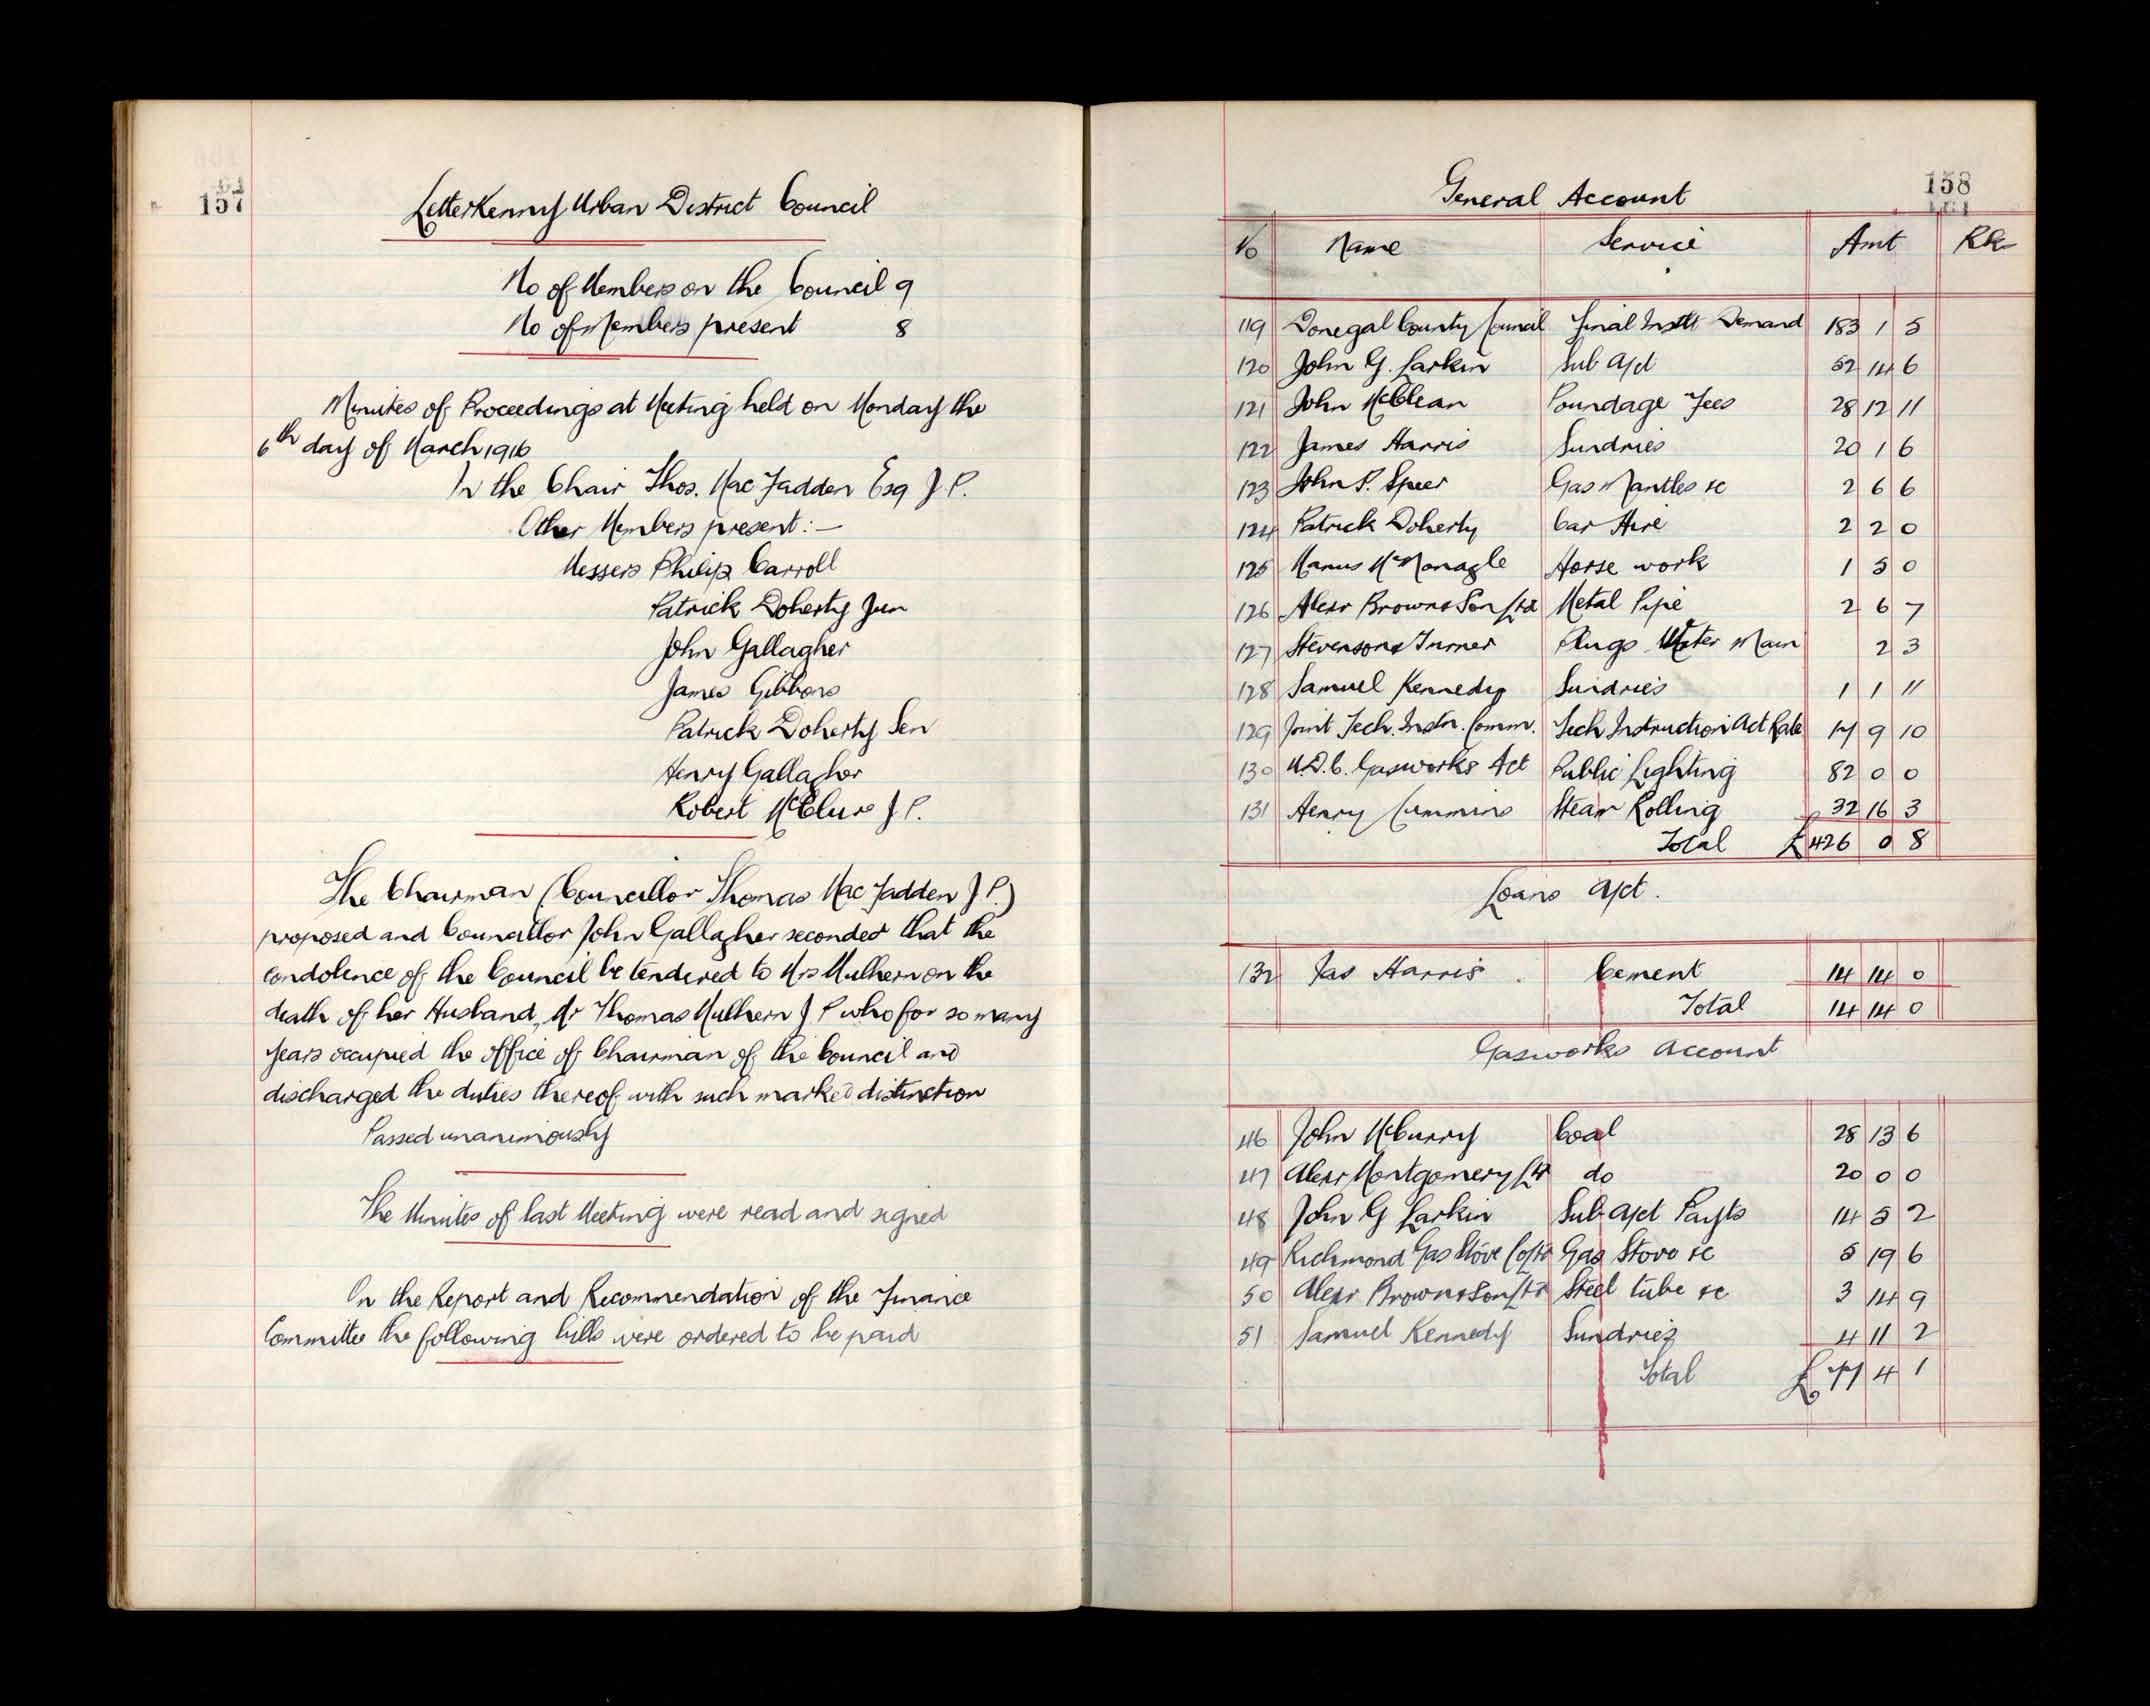 157
Letterkenny Urban District Council
No of Members on the Council 9
No of Members present 8
Minutes of Proceedings at Meeting held on Monday the
6th day of March 1916
In the Chair Thos. Mac Fadden Esq J. P.
Other Members present:—
Messers Philip Carroll
Patrick Doherty Jun
John Gallagher
James Gibbons
Patrick Doherty Sen
Henry Gallagher
Robert McClure J P.
The Chairman (Councillor Thomas Mac Fadden J P.)
proposed and Councillor John Gallagher seconded that the
condolence of the Council be tendered to Mrs Mulhern on the
death of her Husband, Mr Thomas Mulhern J P who for so many
years occupied the office of Chairman of the Council and
discharged the duties thereof with such marked distinction
Passed unanimously
The Minutes of last Meeting were read and signed
On the Report and Recommendation of the Finance
Committee the following bills were ordered to be paid
158
General Account
No Name Service Amt
119 Donegal County Council Final Instlt Demand 183 1 5
120 John G. Larkin Sub a/ct 52 14 6
121 John McClean Poundage Fees 28 12 11
122 James Harris Sundries 20 1 6
123 John P. Speer Gas Mantles &c 2 6 6
124 Patrick Doherty Car Hire 2 2 0
125 Manus McMonagle Horse work 1 5 0
126 Alexr Brown & Son Ltd Metal Pipe 2 6 7
127 Stevenson & Turner Plugs Water Main 2 3
128 Samuel Kennedy Sundries 1 1 11
129 Joint Tech. Instn. Comm. Tech Instruction Act Rate 19 9 10
130 U.D.C. Gasworks Act Public Lighting 82 0 0
131 Henry Cummins Steam Rolling 32 16 3
Total £426 0 8
Loans a/ct.
132 Jas Harris Cement 14 14 0
Total 14 14 0
Gasworks Account
46 John McCurry Coal 28 13 6
47 Alexr Montgomery Ltd do 20 0 0
48 John G Larkin Sub a/ct Payts 14 5 2
49 Richmond Gas Stove Co Ltd Gas Stove &c 5 19 6
50 Alexr Brown & Son Ltd Steel tube &c 3 14 9
51 Samuel Kennedy Sundries 4 11 2
Total £77 4 1